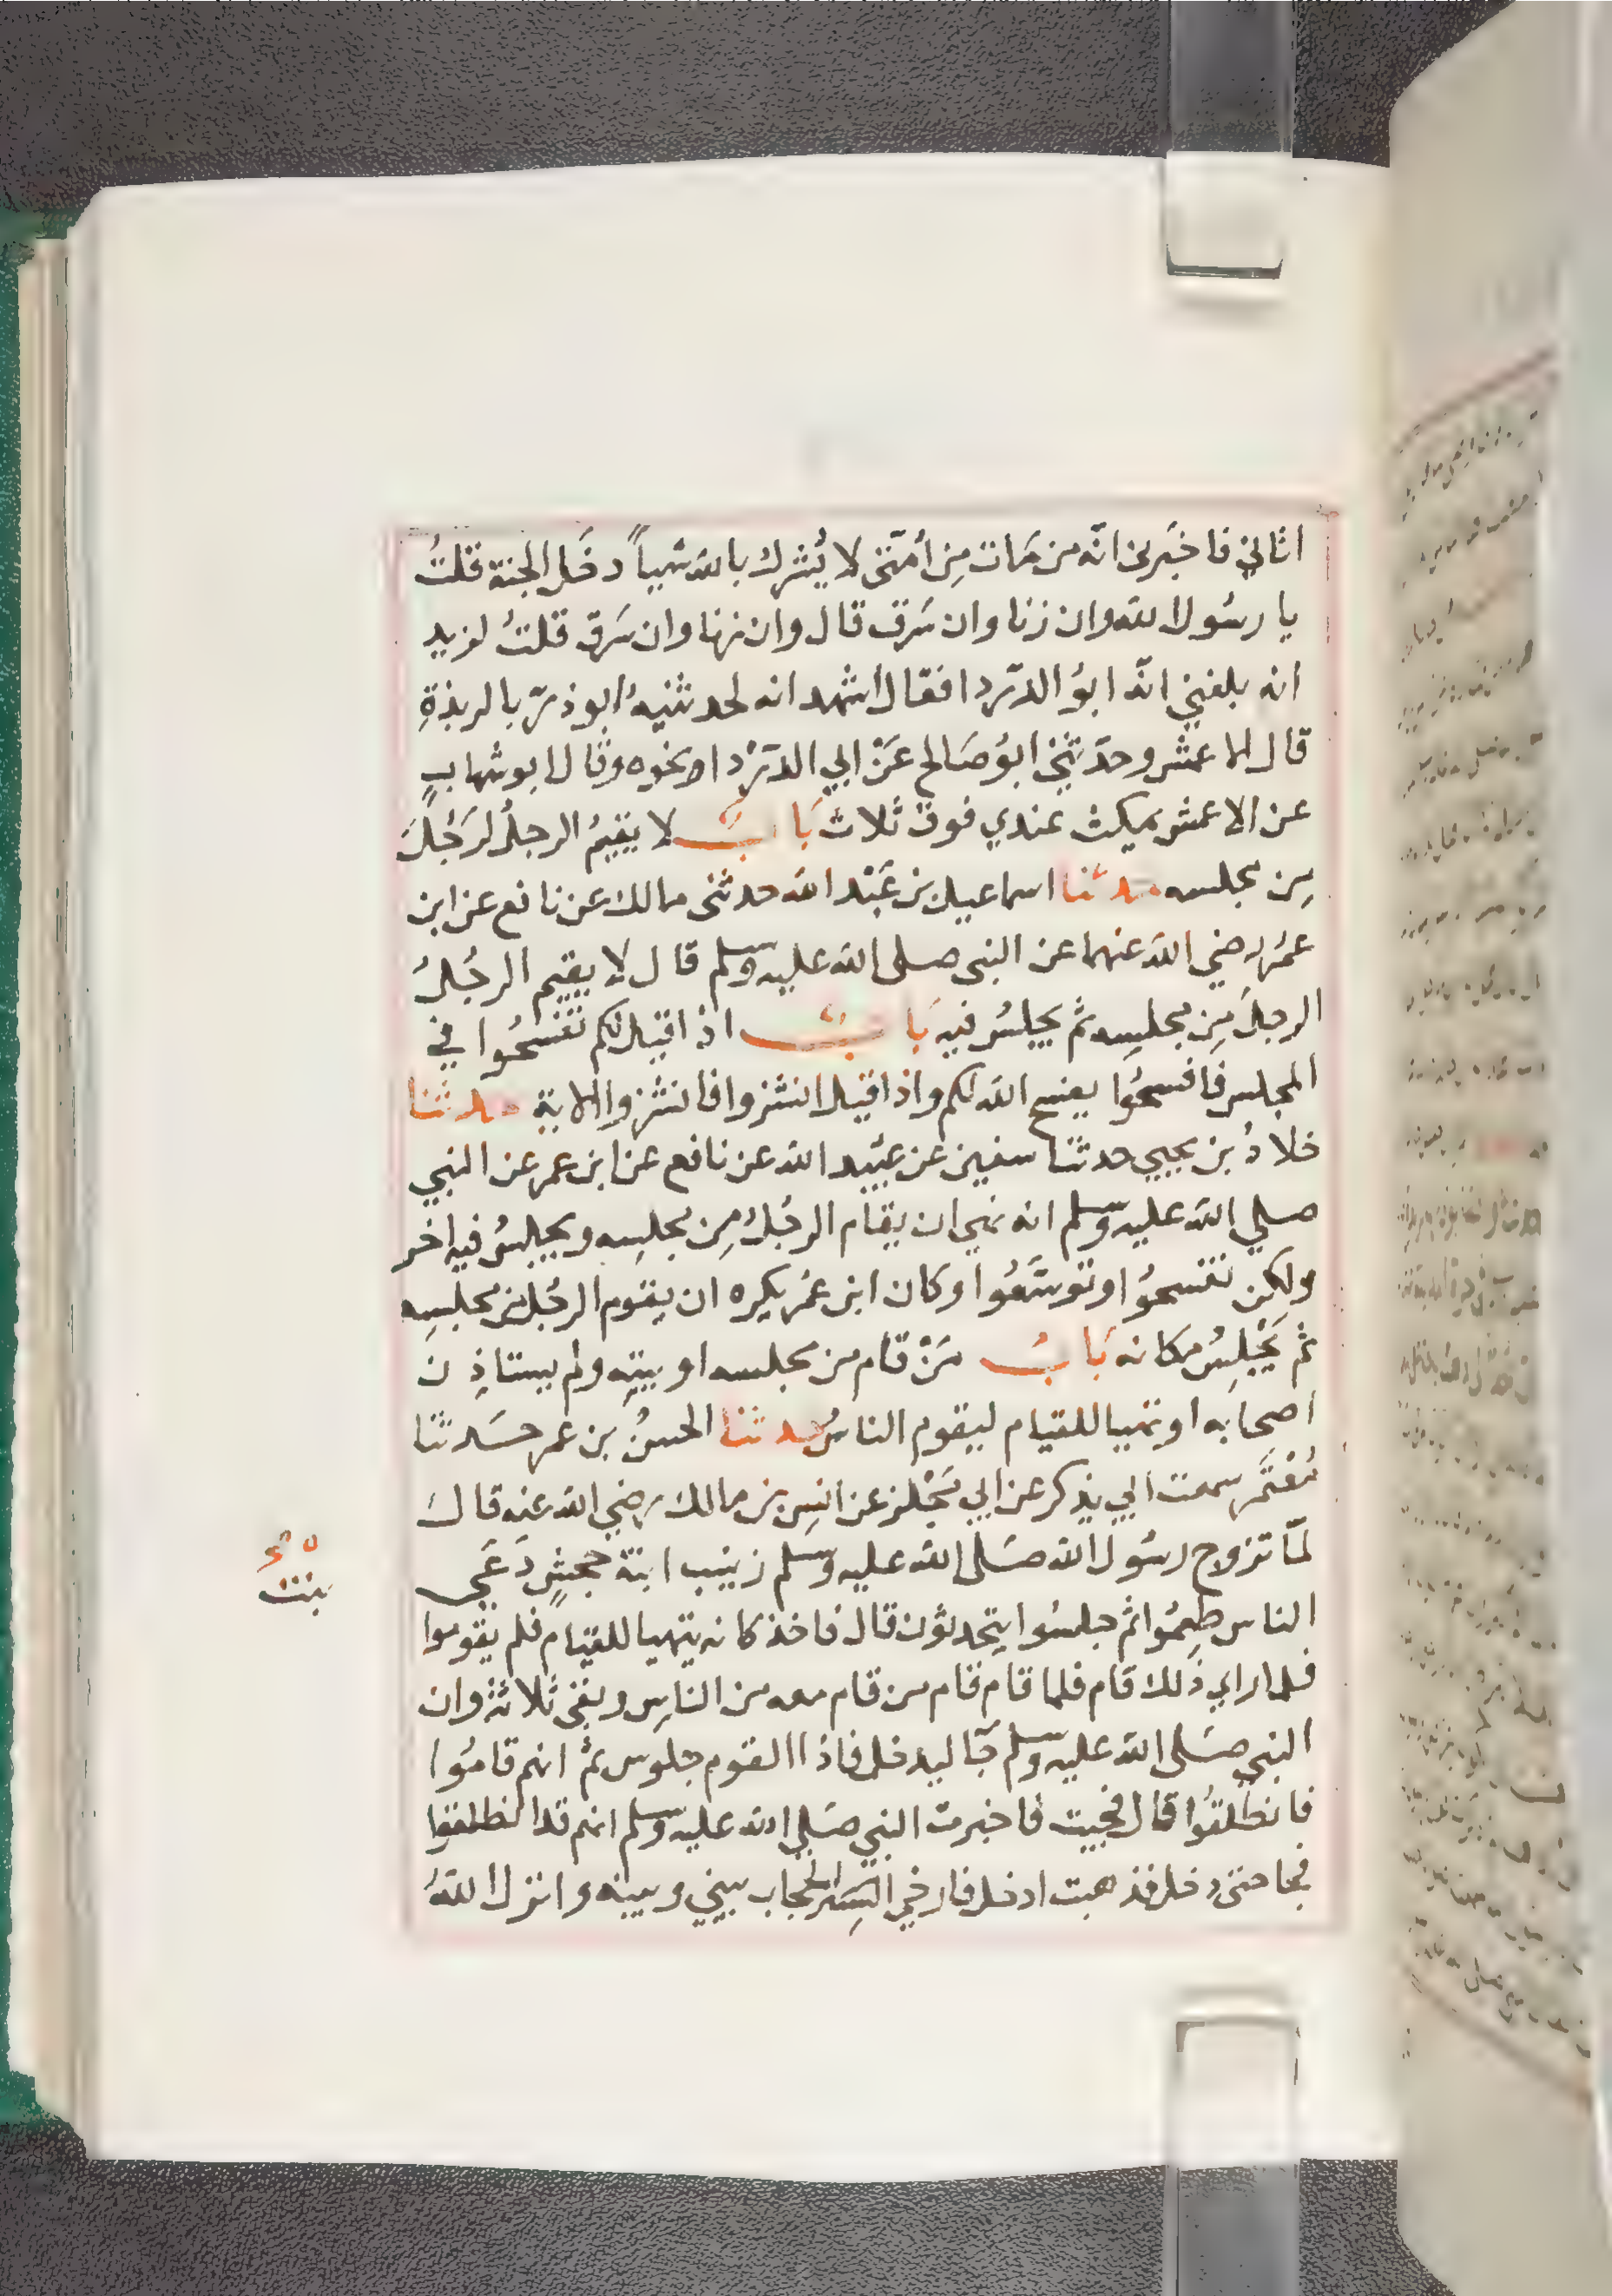 اتاني فاخبرني انّه من مَات مِن أمّتي لا يُشرك بالله شياً دخَل الجنة قلتُ
يا رسُول الله وان زنا وان سَرق قال وان زنا وان سَرق قلتُ لزيد
انه بلغني انّه ابوُ الدّردا فقال اشهد انه لحدثنيهُ ابو ذرّ بالربذةِ
قال الاعمش وحدّثني ابوُ صَالح عَنْ ابي الدّرْدا نحوه وقال ابو شهابٍ
عن الاعمش يمكث عندي فوق ثلاث بَابٌ لا يقيمُ الرجلُ الرَجُلَ
مِن مجلسه حدثنا اسماعيل بن عَبْد الله حدثني مالك عن نافع عن ابن
عمُر رضي الله عنهما عن النبي صلى الله عليه وسلم قال لا يقيم الرجُلُ
الرجلَ مِن مجلسِه ثم يجلسُ فيه بَابٌ اذا قيل لكم تفسحُوا في
المجلس فافسحُوا يفسح الله لكم واذا قيل انشزوا فانشزوا الاية حدثنا
خلادُ بن يحيي حدثنا سفين عن عبَيد الله عن نافع عن ابن عمر عن النبي
صلي الله عليه وسلم انه نهي ان يقام الرجُلُ مِن مجلسِه ويجلسُ فيه اخر
ولكِن تفسحُوا وتوسَّعُوا وكان ابن عمُر يكره ان يقوم الرجُل من مجلسِه
ثم يَجْلِسُ مكانه بَابُ مَنْ قام من مجلسه او بيتِه ولم يستاذِن
اصحابه او تهيا للقيام ليقوم الناسُ حدثنا الحسنُ بن عمر حَدثنا
مُعْتَمَر سمعت ابي يذكر عن ابي مَجْلز عن انسِ بن مالك رضي الله عنه قال
لمّا تزوج رسُول الله صَلى الله عليه وسلم زينب ابنة جحشٍ دَعَي
بنت
الناس طعِمُوا ثم جلسُوا يتحدثون قال فاخذ كانه يتهيا للقيام فلم يقوموا
فلما راي ذلك قام فلما قام قام من قام معه من الناسِ وبقي ثلاثة وان
النبي صَلى الله عليه وسلم جَا ليدخل فاذا القوم جلوس ثم انهم قامُوا
فانطلقُوا قال فجيت فاخبرت النبي صَلي الله عليه وسلم انهم قد انطلقوا
فجا حتى دخل فذهبت ادخل فارخي الحجاب بيني وبينه وانزل اللهُ